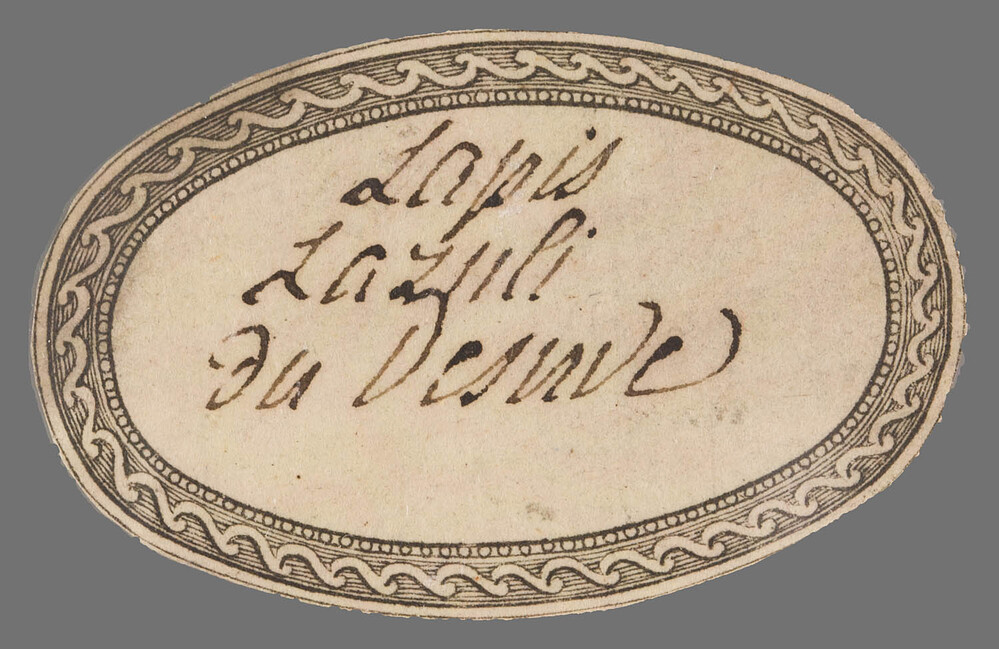 Lapis
Lazuli
du Vesuve